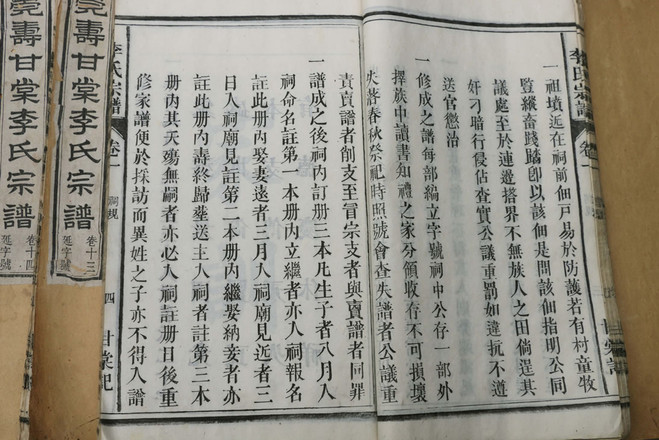 李氏宗譜
卷一
一祖墳近在祠前佃戶易於防護若有村童牧
豎縱畜踐踏卽以該佃是問該佃指明公同
議處至於連邊搭界不無族人之田倘逞其
奸刁暗行侵佔查實公議重罰如違抗不遵
送官懲治
一修成之譜每部編立字號祠中公存一部外
擇族中讀書知禮之家分領收存不可損壞
失落春秋祭祀時照號會查失譜者公議重
責賣譜者削支至冒宗支者與賣譜者同罪
一譜成之後祠內訂册三本凡生子者八月入
祠命名註第一本册內立繼者亦入祠報名
日入祠廟見註第二本册內繼娶納妾者亦
註此册內娶妻遠者三月入祠廟見近者三
註此册內壽終歸塟送主入祠者註第三本
册內其夭殤無嗣者亦必入祠註册日後重
修家譜便於採訪而異姓之子亦不得入譜
李氏宗譜
卷一
祠規
四
甘棠祀
壽甘棠李氏宗譜
卷十三
延字號
壽甘棠李氏宗譜
卷十四
延字號